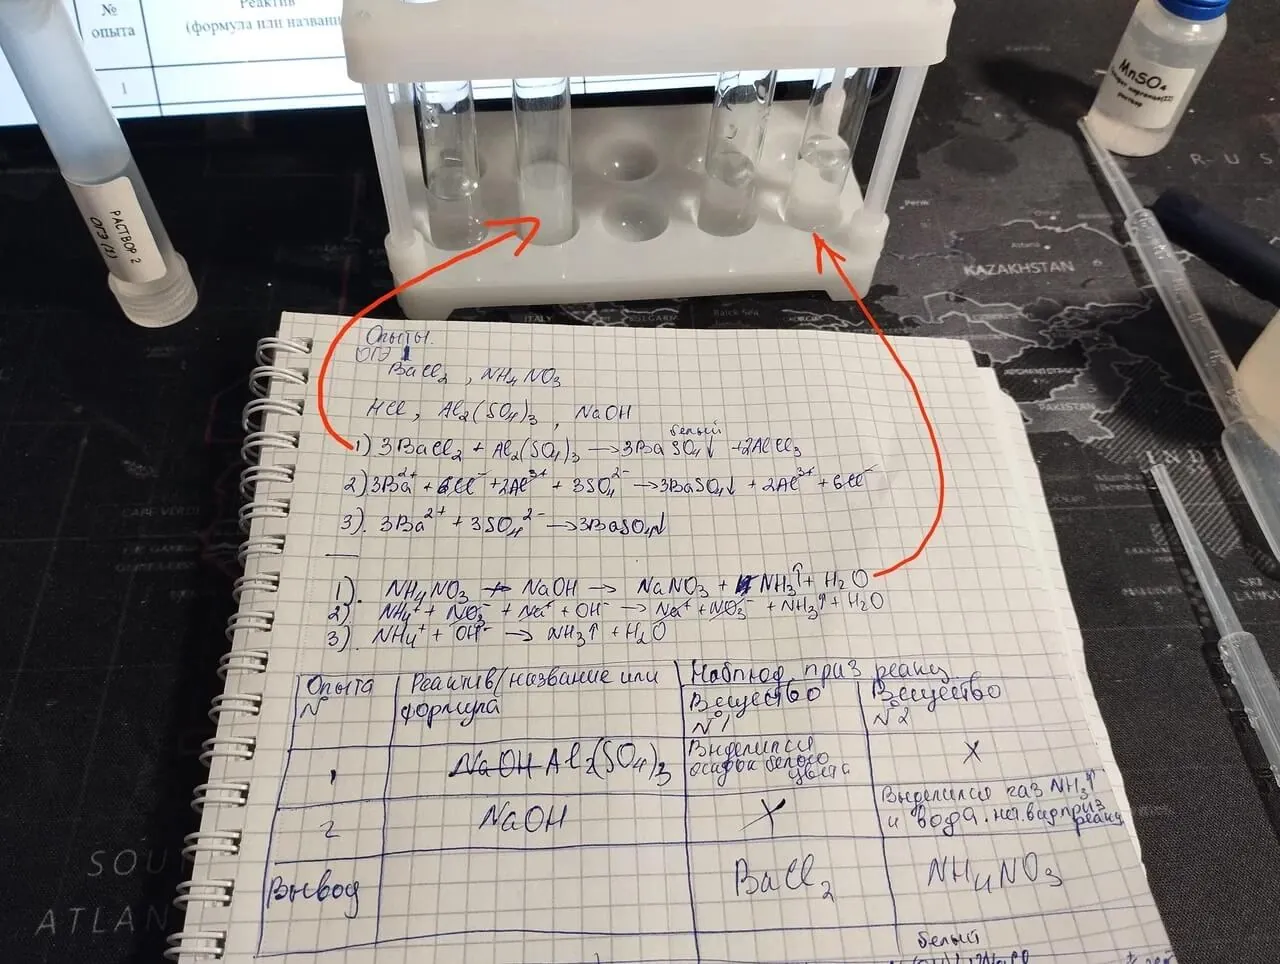 №
опыта
Реактив
(формула или назван
1
MnSO₄
раствор
РАСТВОР 2
ОГЭ (1)
R U S
Perm
Astana
KAZAKHSTAN
ITALY
BULGARIA
Black Sea
PAKISTAN
CAPE VERDE
SOU
ATLAN
Опыты.
ОГЭ 1
BaCl₂, NH₄NO₃
HCl, Al₂(SO₄)₃, NaOH
белый
1) 3BaCl₂ + Al₂(SO₄)₃ → 3BaSO₄↓ + 2AlCl₃
2) 3Ba²⁺ + 6Cl⁻ + 2Al³⁺ + 3SO₄²⁻ → 3BaSO₄↓ + 2Al³⁺ + 6Cl⁻
3). 3Ba²⁺ + 3SO₄²⁻ → 3BaSO₄↓
1). NH₄NO₃ + NaOH → NaNO₃ + NH₃↑ + H₂O
2). NH₄⁺ + NO₃⁻ + Na⁺ + OH⁻ → Na⁺ + NO₃⁻ + NH₃↑ + H₂O
3). NH₄⁺ + OH⁻ → NH₃↑ + H₂O
Опыта
№
Реактив (название или
формула
Наблюд. приз реакц
Вещество
№1
Вещество
№2
1
NaOH Al₂(SO₄)₃
Выделился
осадок белого
цвета
X
2
NaOH
X
Выделился газ NH₃↑
и вода. нет. вид приз
реакц
Вывод
BaCl₂
NH₄NO₃
белый